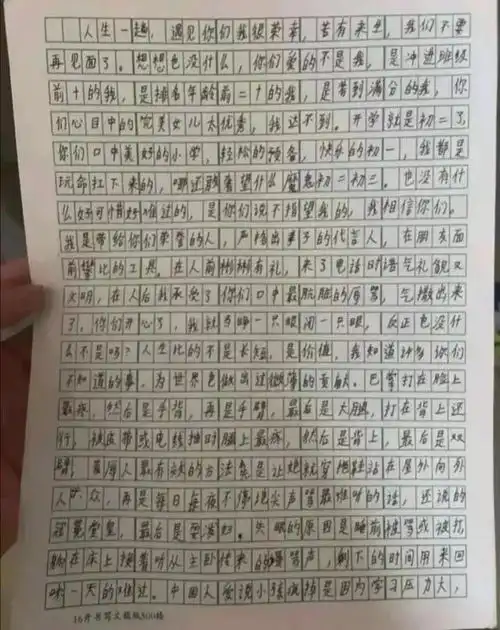 人生一趟，遇见你们我很荣幸，若有来生，我们不要
再见面了。想想也没什么，你们爱的不是我，是冲进班级
前十的我，是排名年龄前二十的我，是考到满分的我，你
们心目中的完美女儿太优秀，我达不到。开学就是初二了，
你们口中美好的小学，轻松的预备，快乐的初一，我都是
玩命扛下来的，哪还敢奢望什么魔鬼初二初三。也没有什
么好可惜好难过的，是你们说不指望我的，我相信你们。
我是带给你们荣誉的人，严格出事子的代言人，在朋友面
前攀比的工具。在人前彬彬有礼，来了电话时语气礼貌又
文明，在人后我承受了你们口中最肮脏的辱骂，气撒出来
了，你们开心了，我就当睁一只眼闭一只眼，反正也没什
么不是吗？人生比的不是长短，是价值，我知道许多你们
不知道的事，为世界也做出过微薄的贡献。巴掌打在脸上
最疼，然后是手背，再是手臂，最后是大腿，打在背上还
行，被皮带或电线抽时腿上最疼，然后是背上，最后是双
臂，羞辱人最有效的方法莫是让她就穿拖鞋站在屋外向外
人 众，再是每日每夜不停地尖声骂最难听的话，还说的
冠冕堂皇，最后是耍泼妇。失眠的原因是睡前被骂或被打
躺在床上接着听从主卧传来的 骂声，剩下的时间用来回
味一天的难过。中国人爱说小孩疯掉是因为学习压力大，
16开书写文稿纸300格